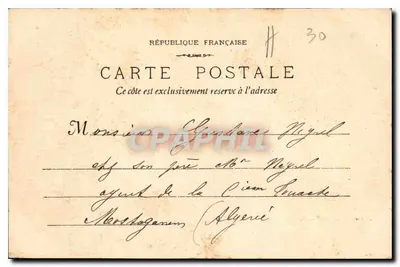 H 30
RÉPUBLIQUE FRANÇAISE
CARTE POSTALE
Ce côté est exclusivement reservé à l'adresse
Monsieur Gustave Nigrel
chez son père Mr Nigrel
agent de la Cie
Mostaganem (Algérie
CPAPHIL